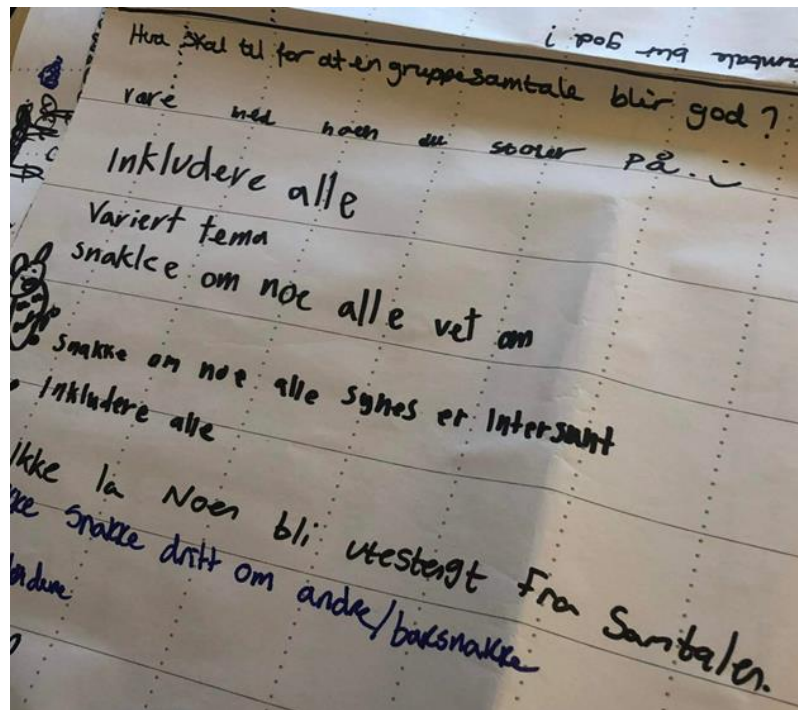 samtale blir god i
Hva skal til for at en gruppesamtale blir god?
være med noen du stoler på. :)
Inkludere alle
Variert tema
snakke om noe alle vet om
snakke om noe alle synes er intersant
Inkludere alle
Ikke la Noen bli utestengt fra Samtalen.
snakke dritt om andre/baksnakke